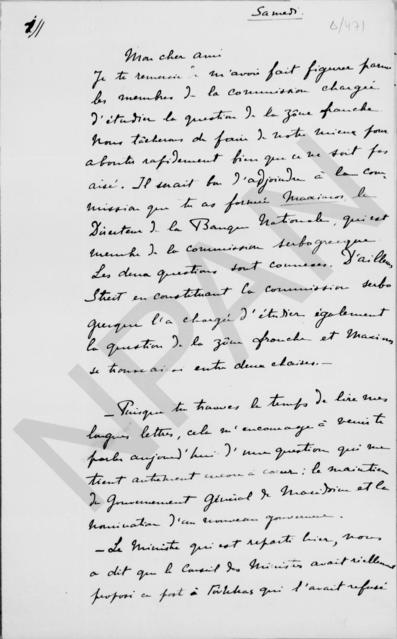 Samedi.
6/471
1//
Mon cher ami
Je te remercie de m'avoir fait figurer parmi
les membres de la commission chargée
d'étudier la question de la zône franche.
Nous tâcherons de faire de notre mieux pour
aboutir rapidement bien que ce ne soit pas
aisé. Il serait bon d'adjoindre à la com-
mission que tu as formée Maximos, le
Directeur de la Banque Nationale, qui est
membre de la commission serbogrecque.
Les deux questions sont connexes. D'ailleurs
Streit en constituant la commission serbo
grecque l'a chargée d'étudier également
la question de la zône franche et Maximos
se trouve ainsi entre deux chaises.—
— Puisque tu trouves le temps de lire mes
longues lettres, cela m'encourage à venir te
parler aujourd'hui d'une question qui me
tient autrement encore à cœur: le maintien
du Gouvernement Général de Macédoine et la
nomination d'un nouveau gouverneur.
— Le Ministre qui est reparti hier, nous
a dit que le Conseil des Ministres avait réellement
proposé ce post à qui l'avait refusé
NPAN